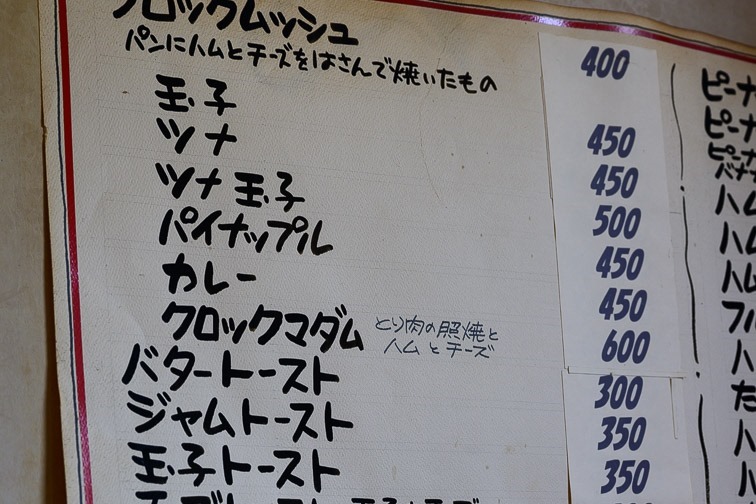 クロックムッシュ
パンにハムとチーズをはさんで焼いたもの 400
玉子 450
ツナ 450
ツナ玉子 500
パイナップル 450
カレー 450
クロックマダム とり肉の照焼と ハムとチーズ 600
バタートースト 300
ジャムトースト 350
玉子トースト 350
ピーナ
ピーナ
ピーナ
バナナ
ハム
ハム
ハム